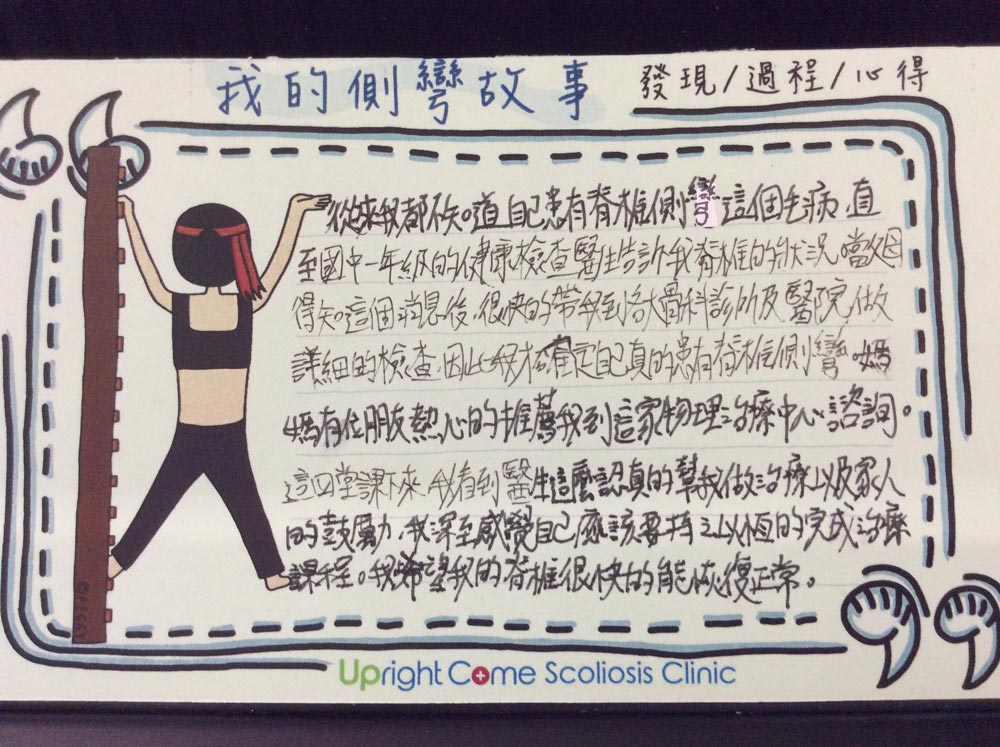 我的側彎故事 發現/過程/心得
從來我都不知道自己患有脊椎側彎這個毛病,直
至國中一年級的健康檢查醫生告訴我脊椎的狀況。當父母
得知這個消息後,很快的帶我到各大骨科診所及醫院,做
詳細的檢查,因此我才確定自己真的患有脊椎側彎。媽
媽有位朋友熱心的推薦我到這家物理治療中心諮詢。
這四堂課下來,我看到醫生這麼認真的幫我做治療以及家人
的鼓勵力,我深至感覺自己應該要持之以恆的完成治療
課程。我希望我的脊椎很快的能恢復正常。
Upright Come Scoliosis Clinic